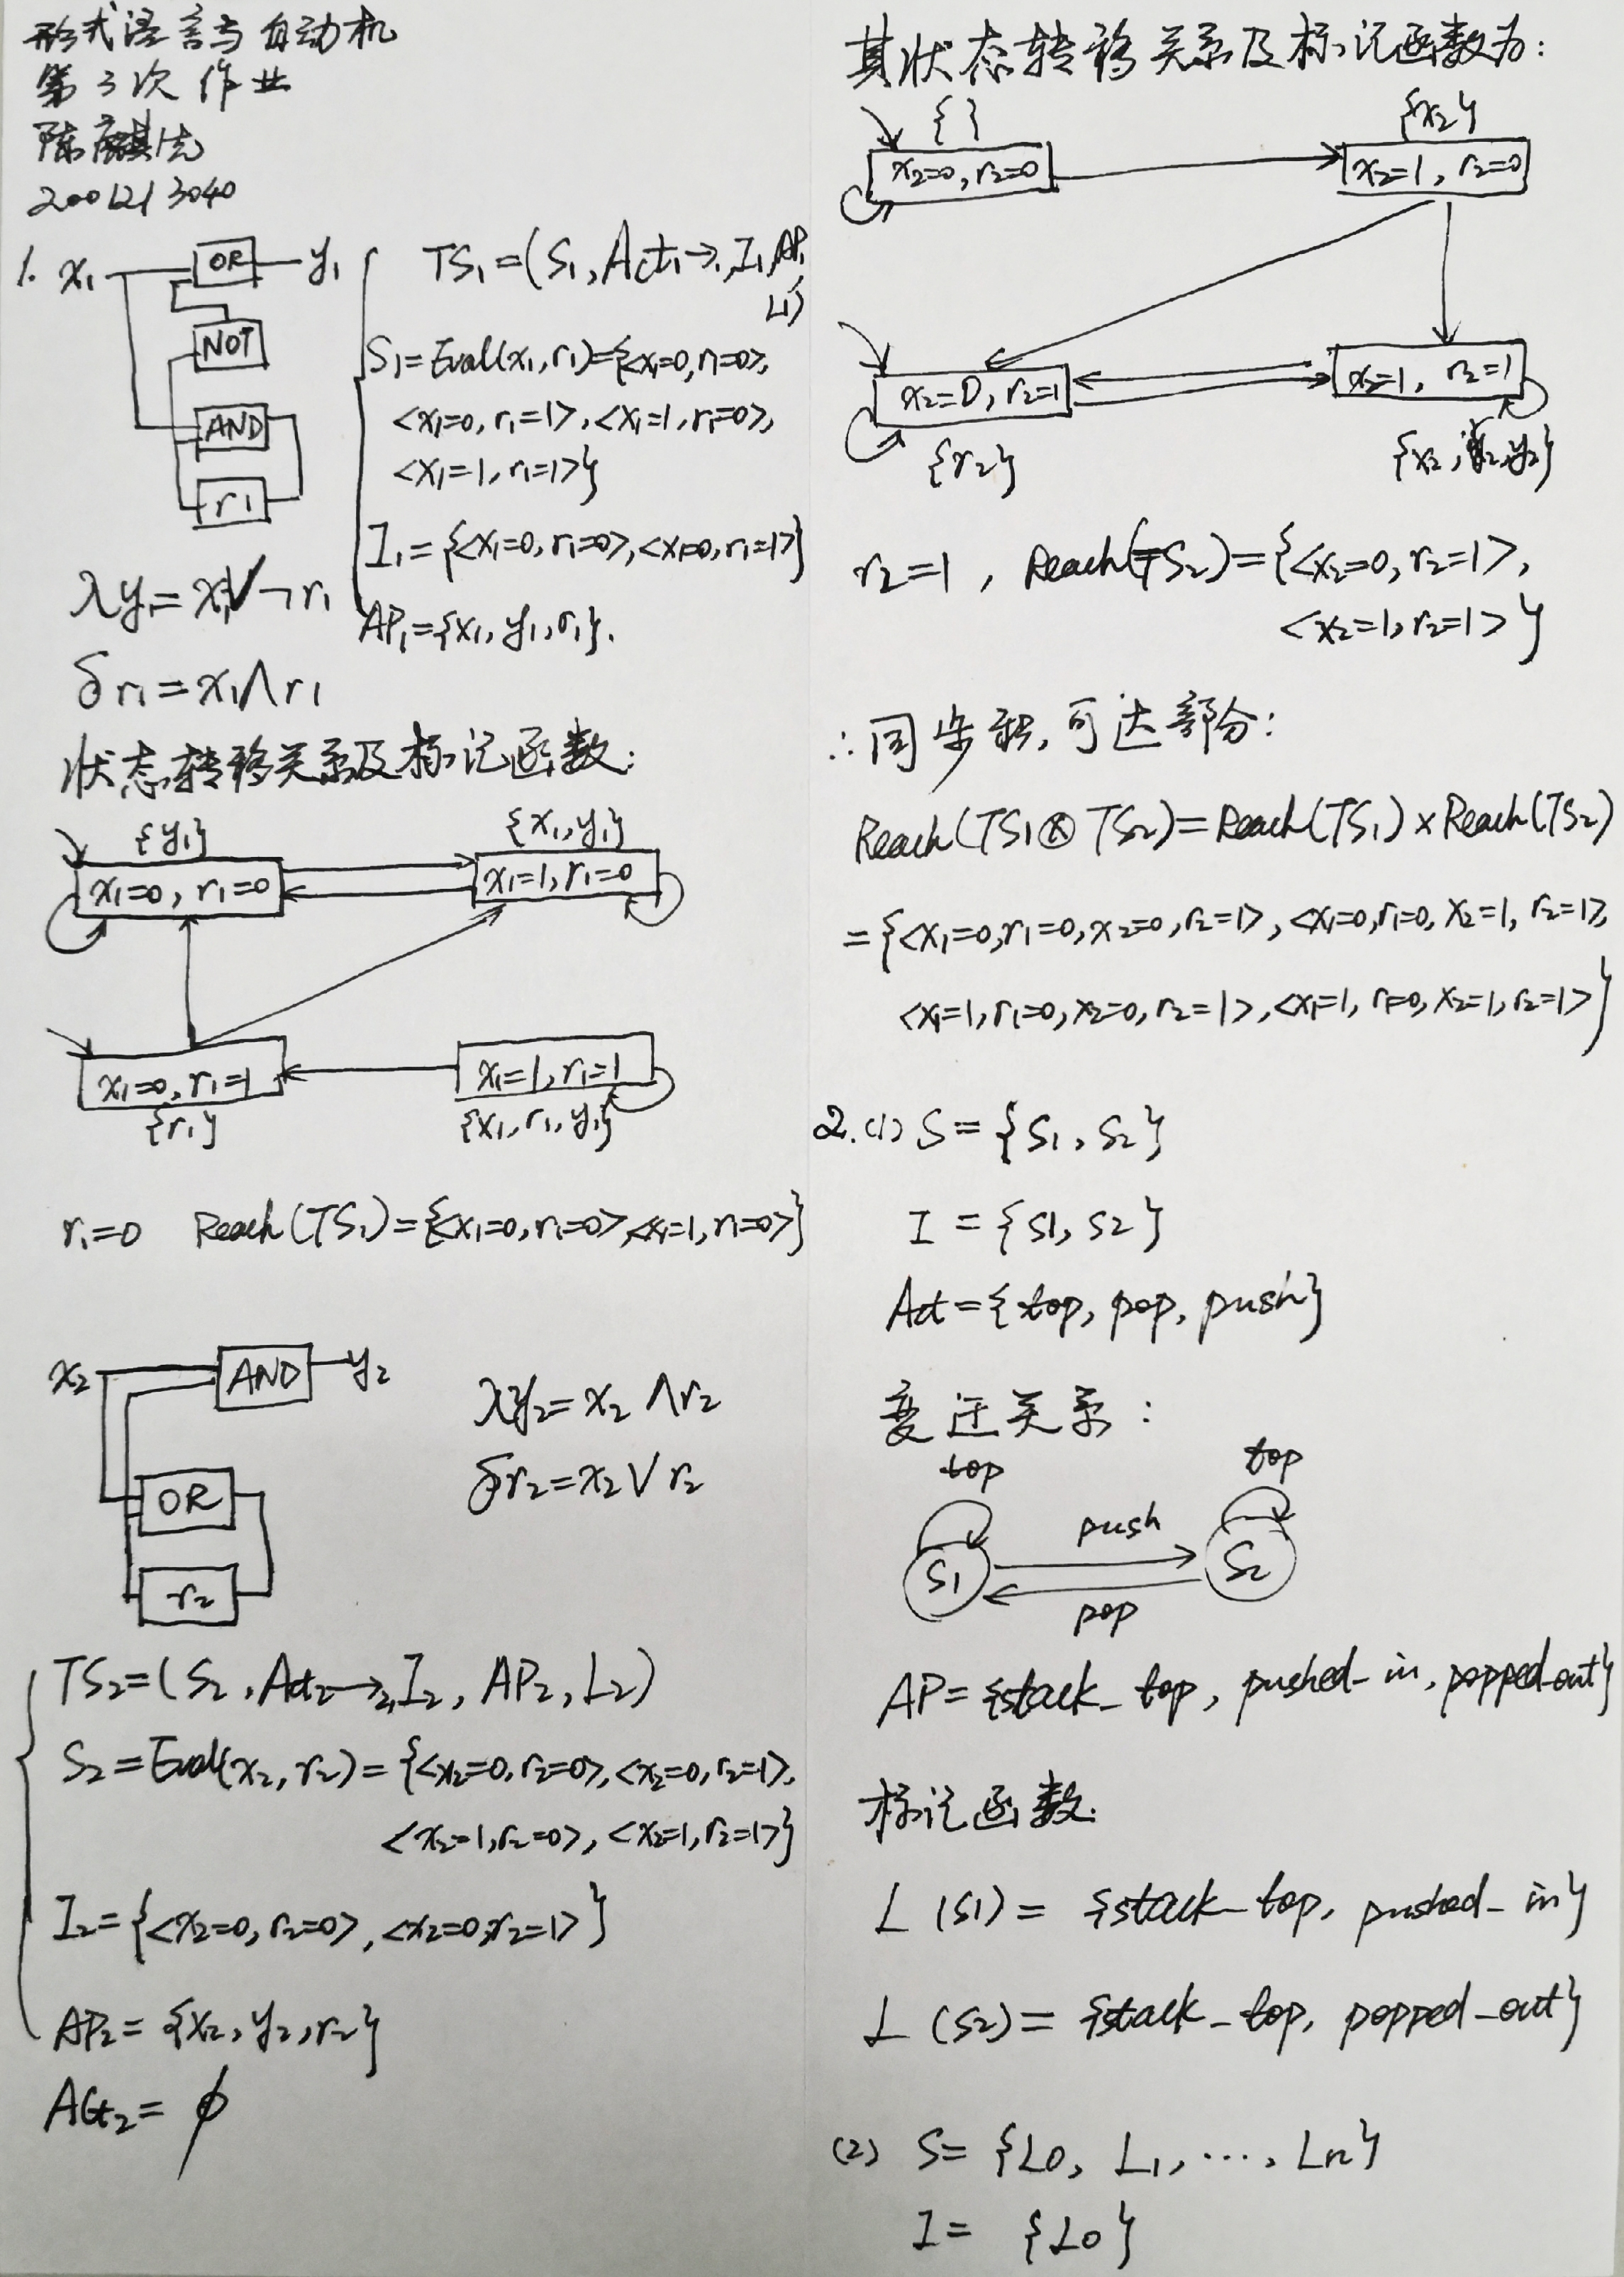 形式语言与自动机
第3次作业
1.
x₁ OR y₁
NOT
AND
r₁
λy₁=x₁∨¬r₁
δr₁=x₁∧r₁
TS₁=(S₁,Act₁→₁,I₁,AP₁,
L₁)
S₁=Eval(x₁,r₁)={<x₁=0,r₁=0>,
<x₁=0,r₁=1>,<x₁=1,r₁=0>,
<x₁=1,r₁=1>}
I₁={<x₁=0,r₁=0>,<x₁=0,r₁=1>}
AP₁={x₁,y₁,r₁}.
状态转移关系及标记函数:
{y₁} {x₁,y₁}
x₁=0,r₁=0 x₁=1,r₁=0
x₁=0,r₁=1 x₁=1,r₁=1
{r₁} {x₁,r₁,y₁}
r₁=0 Reach(TS₁)={<x₁=0,r₁=0>,<x₁=1,r₁=0>}
x₂ AND y₂
OR
r₂
λy₂=x₂∧r₂
δr₂=x₂∨r₂
TS₂=(S₂,Act₂→₂,I₂,AP₂,L₂)
S₂=Eval(x₂,r₂)={<x₂=0,r₂=0>,<x₂=0,r₂=1>,
<x₂=1,r₂=0>,<x₂=1,r₂=1>}
I₂={<x₂=0,r₂=0>,<x₂=0,r₂=1>}
AP₂={x₂,y₂,r₂}
Act₂=ϕ
其状态转移关系及标记函数为:
{ } {x₂}
x₂=0,r₂=0 x₂=1,r₂=0
x₂=0,r₂=1 x₂=1,r₂=1
{r₂} {x₂,r₂,y₂}
r₂=1, Reach(TS₂)={<x₂=0,r₂=1>,
<x₂=1,r₂=1>}
∴同步积,可达部分:
Reach(TS₁⊗TS₂)=Reach(TS₁)×Reach(TS₂)
={<x₁=0,r₁=0,x₂=0,r₂=1>,<x₁=0,r₁=0,x₂=1,r₂=1>,
<x₁=1,r₁=0,x₂=0,r₂=1>,<x₁=1,r₁=0,x₂=1,r₂=1>}
2.(1) S={s₁,s₂}
I={s1,s2}
Act={top,pop,push}
变迁关系:
top top
push
S₁ S₂
pop
AP={stack_top,pushed_in,popped_out}
标记函数:
L(s1)={stack_top,pushed_in}
L(s2)={stack_top,popped_out}
(2) S={L0,L1,…,Ln}
I={L0}